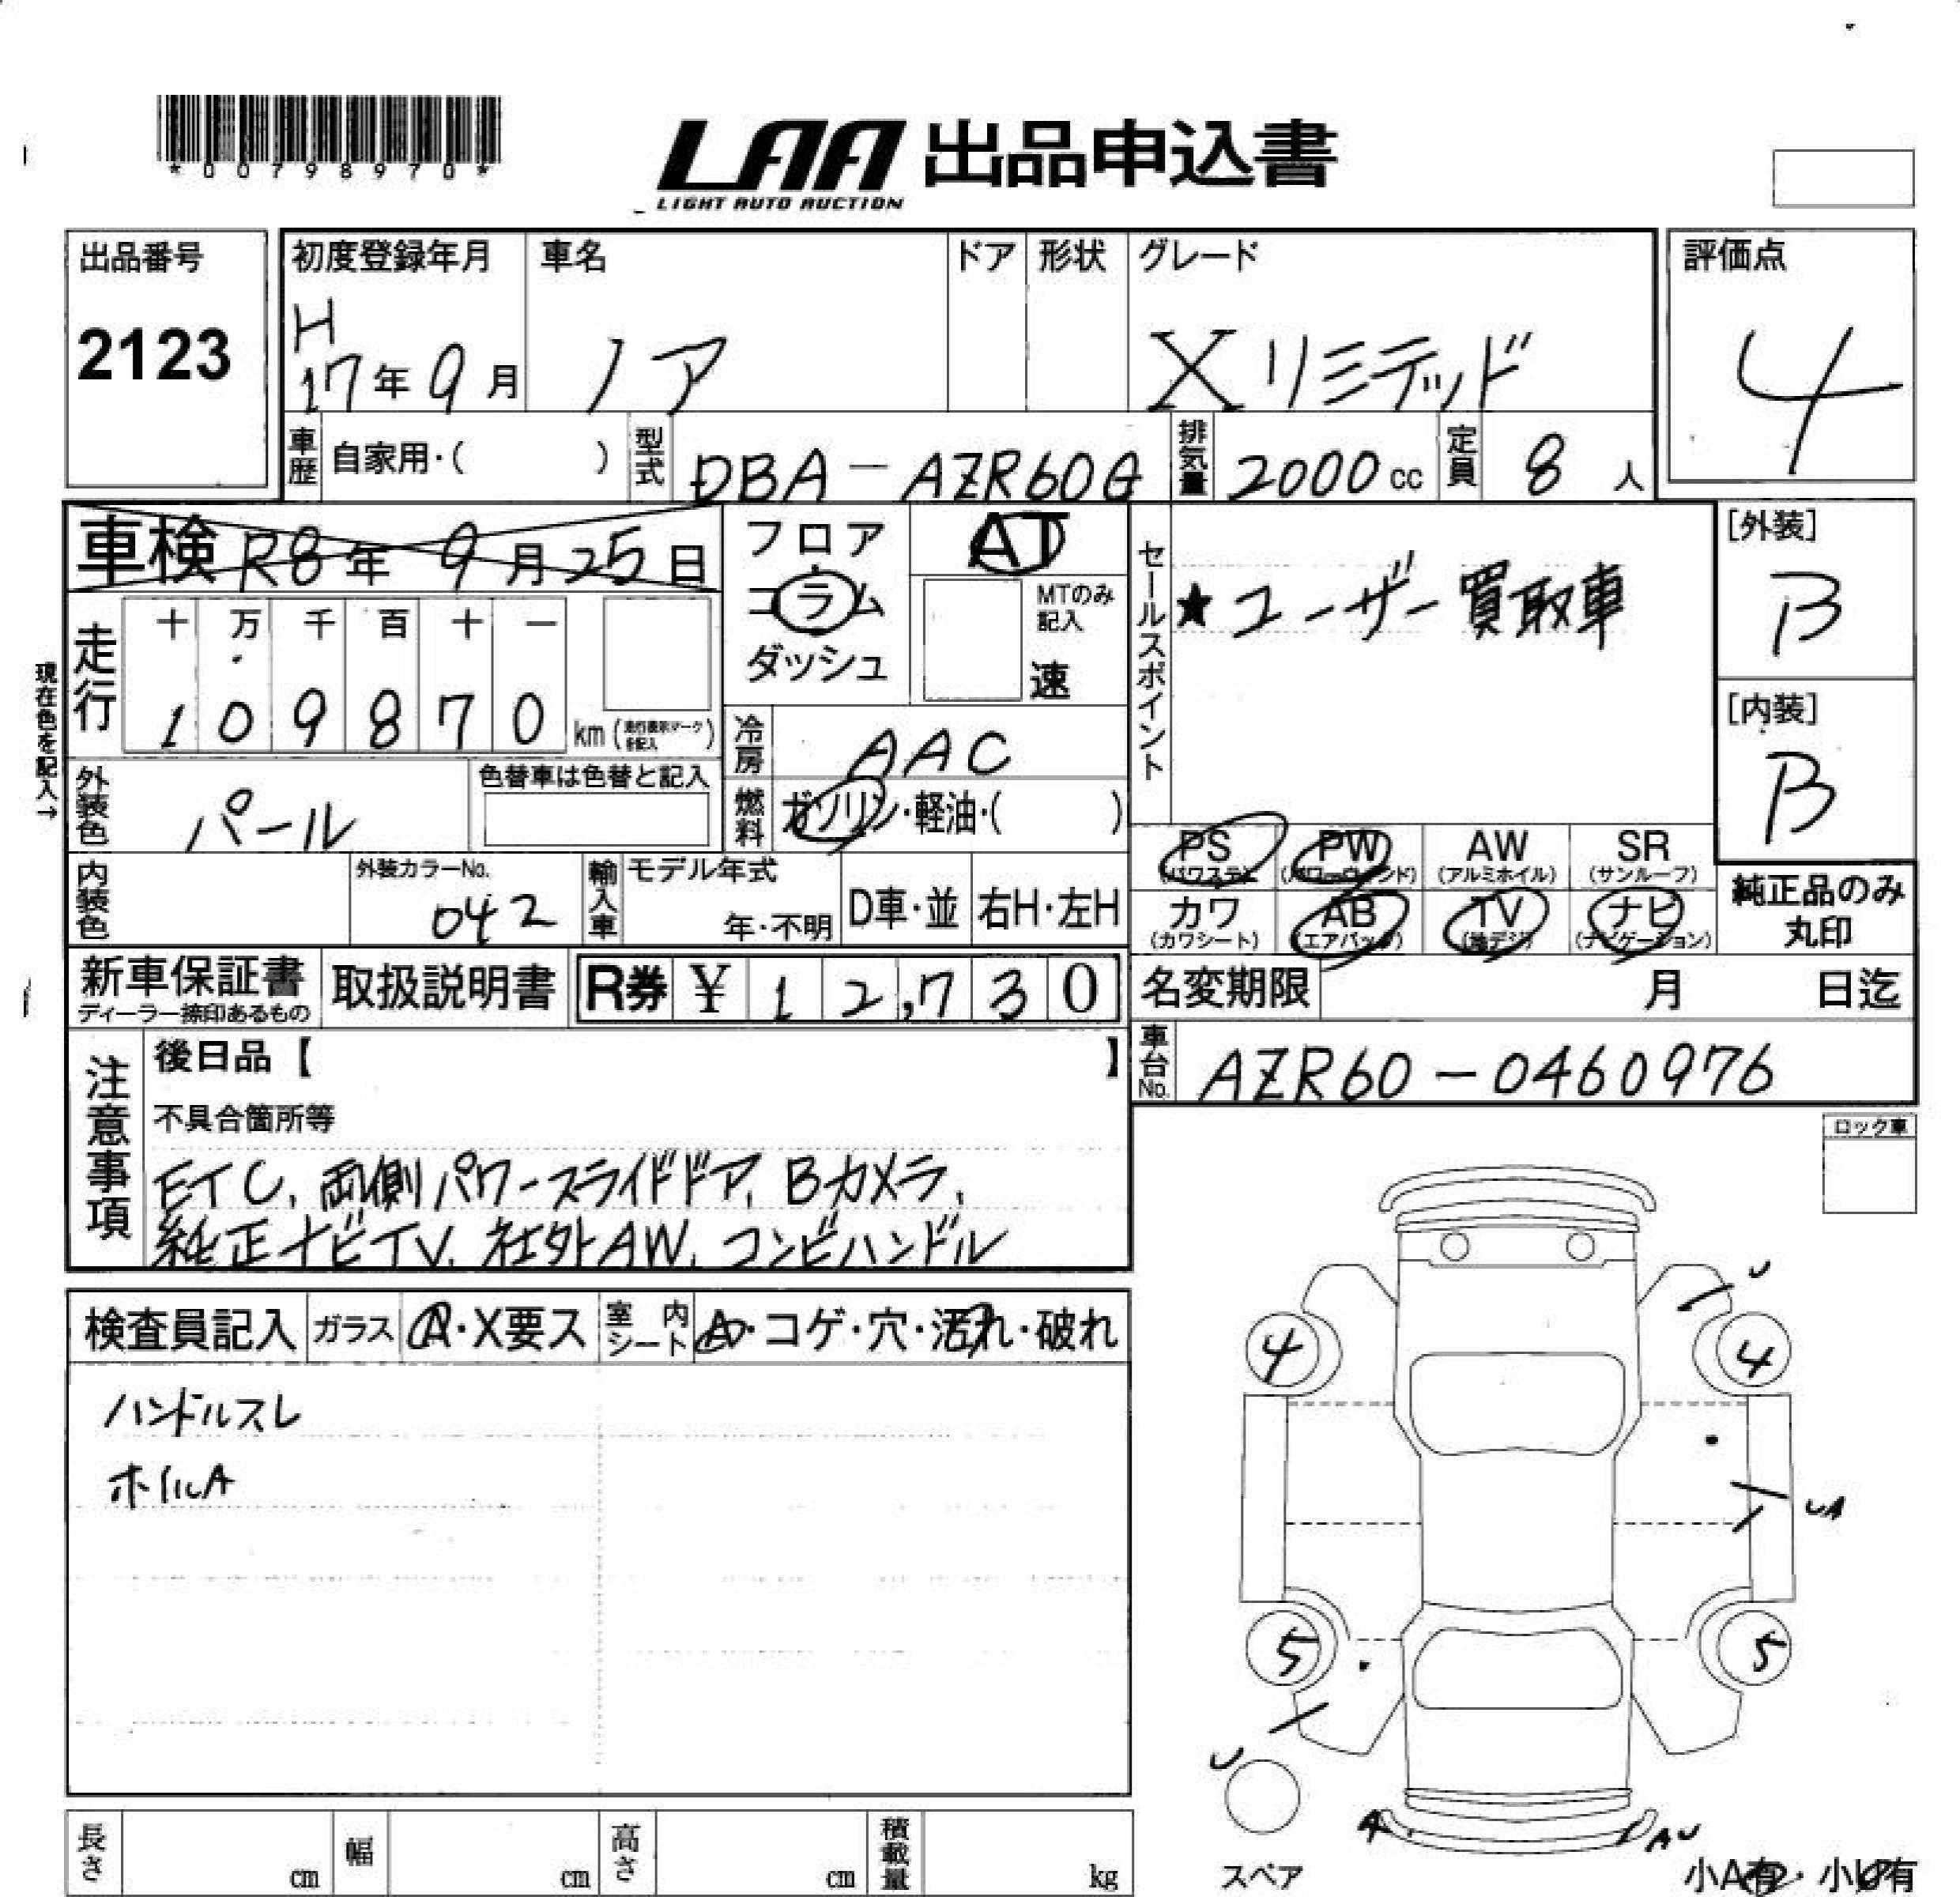 *00798970*
LAA 出品申込書
LIGHT AUTO AUCTION
出品番号
2123
初度登録年月
H
17年9月
車名
ノア
ドア
形状
グレード
Xリミテッド
評価点
4
車歴
自家用・( )
型式
DBA-AZR60G
排気量
2000cc
定員
8人
車検 R8年9月25日
フロア
コラム
ダッシュ
AT
MTのみ
記入
速
セールスポイント
★ユーザー買取車
[外装]
B
[内装]
B
現在色を記入→
走行
十 万 千 百 十 一
1 0 9 8 7 0 km
冷房
AAC
外装色
パール
色替車は色替と記入
燃料
ガソリン・軽油・( )
内装色
外装カラーNo.
042
輸入車
モデル年式
年・不明
D車・並
右H・左H
PS
(パワステ)
PW
(パワーウィンド)
AW
(アルミホイル)
SR
(サンルーフ)
カワ
(カワシート)
AB
(エアバッグ)
TV
(地デジ)
ナビ
(ナビゲーション)
純正品のみ
丸印
新車保証書
ディーラー捺印あるもの
取扱説明書
R券 ¥12,730
名変期限
月 日迄
車台No.
AZR60-0460976
注意事項
後日品【 】
不具合箇所等
ETC, 両側パワースライドドア, Bカメラ,
純正ナビTV, 社外AW, コンビハンドル
ロック車
検査員記入
ガラス
A・X要ス
室内シート
A・コゲ・穴・汚れ・破れ
ハンドルスレ
ホイルA
U
4
4
UA
5
5
U
A
AU
スペア
小A有・小U有
長さ
cm
幅
cm
高さ
cm
積載量
kg